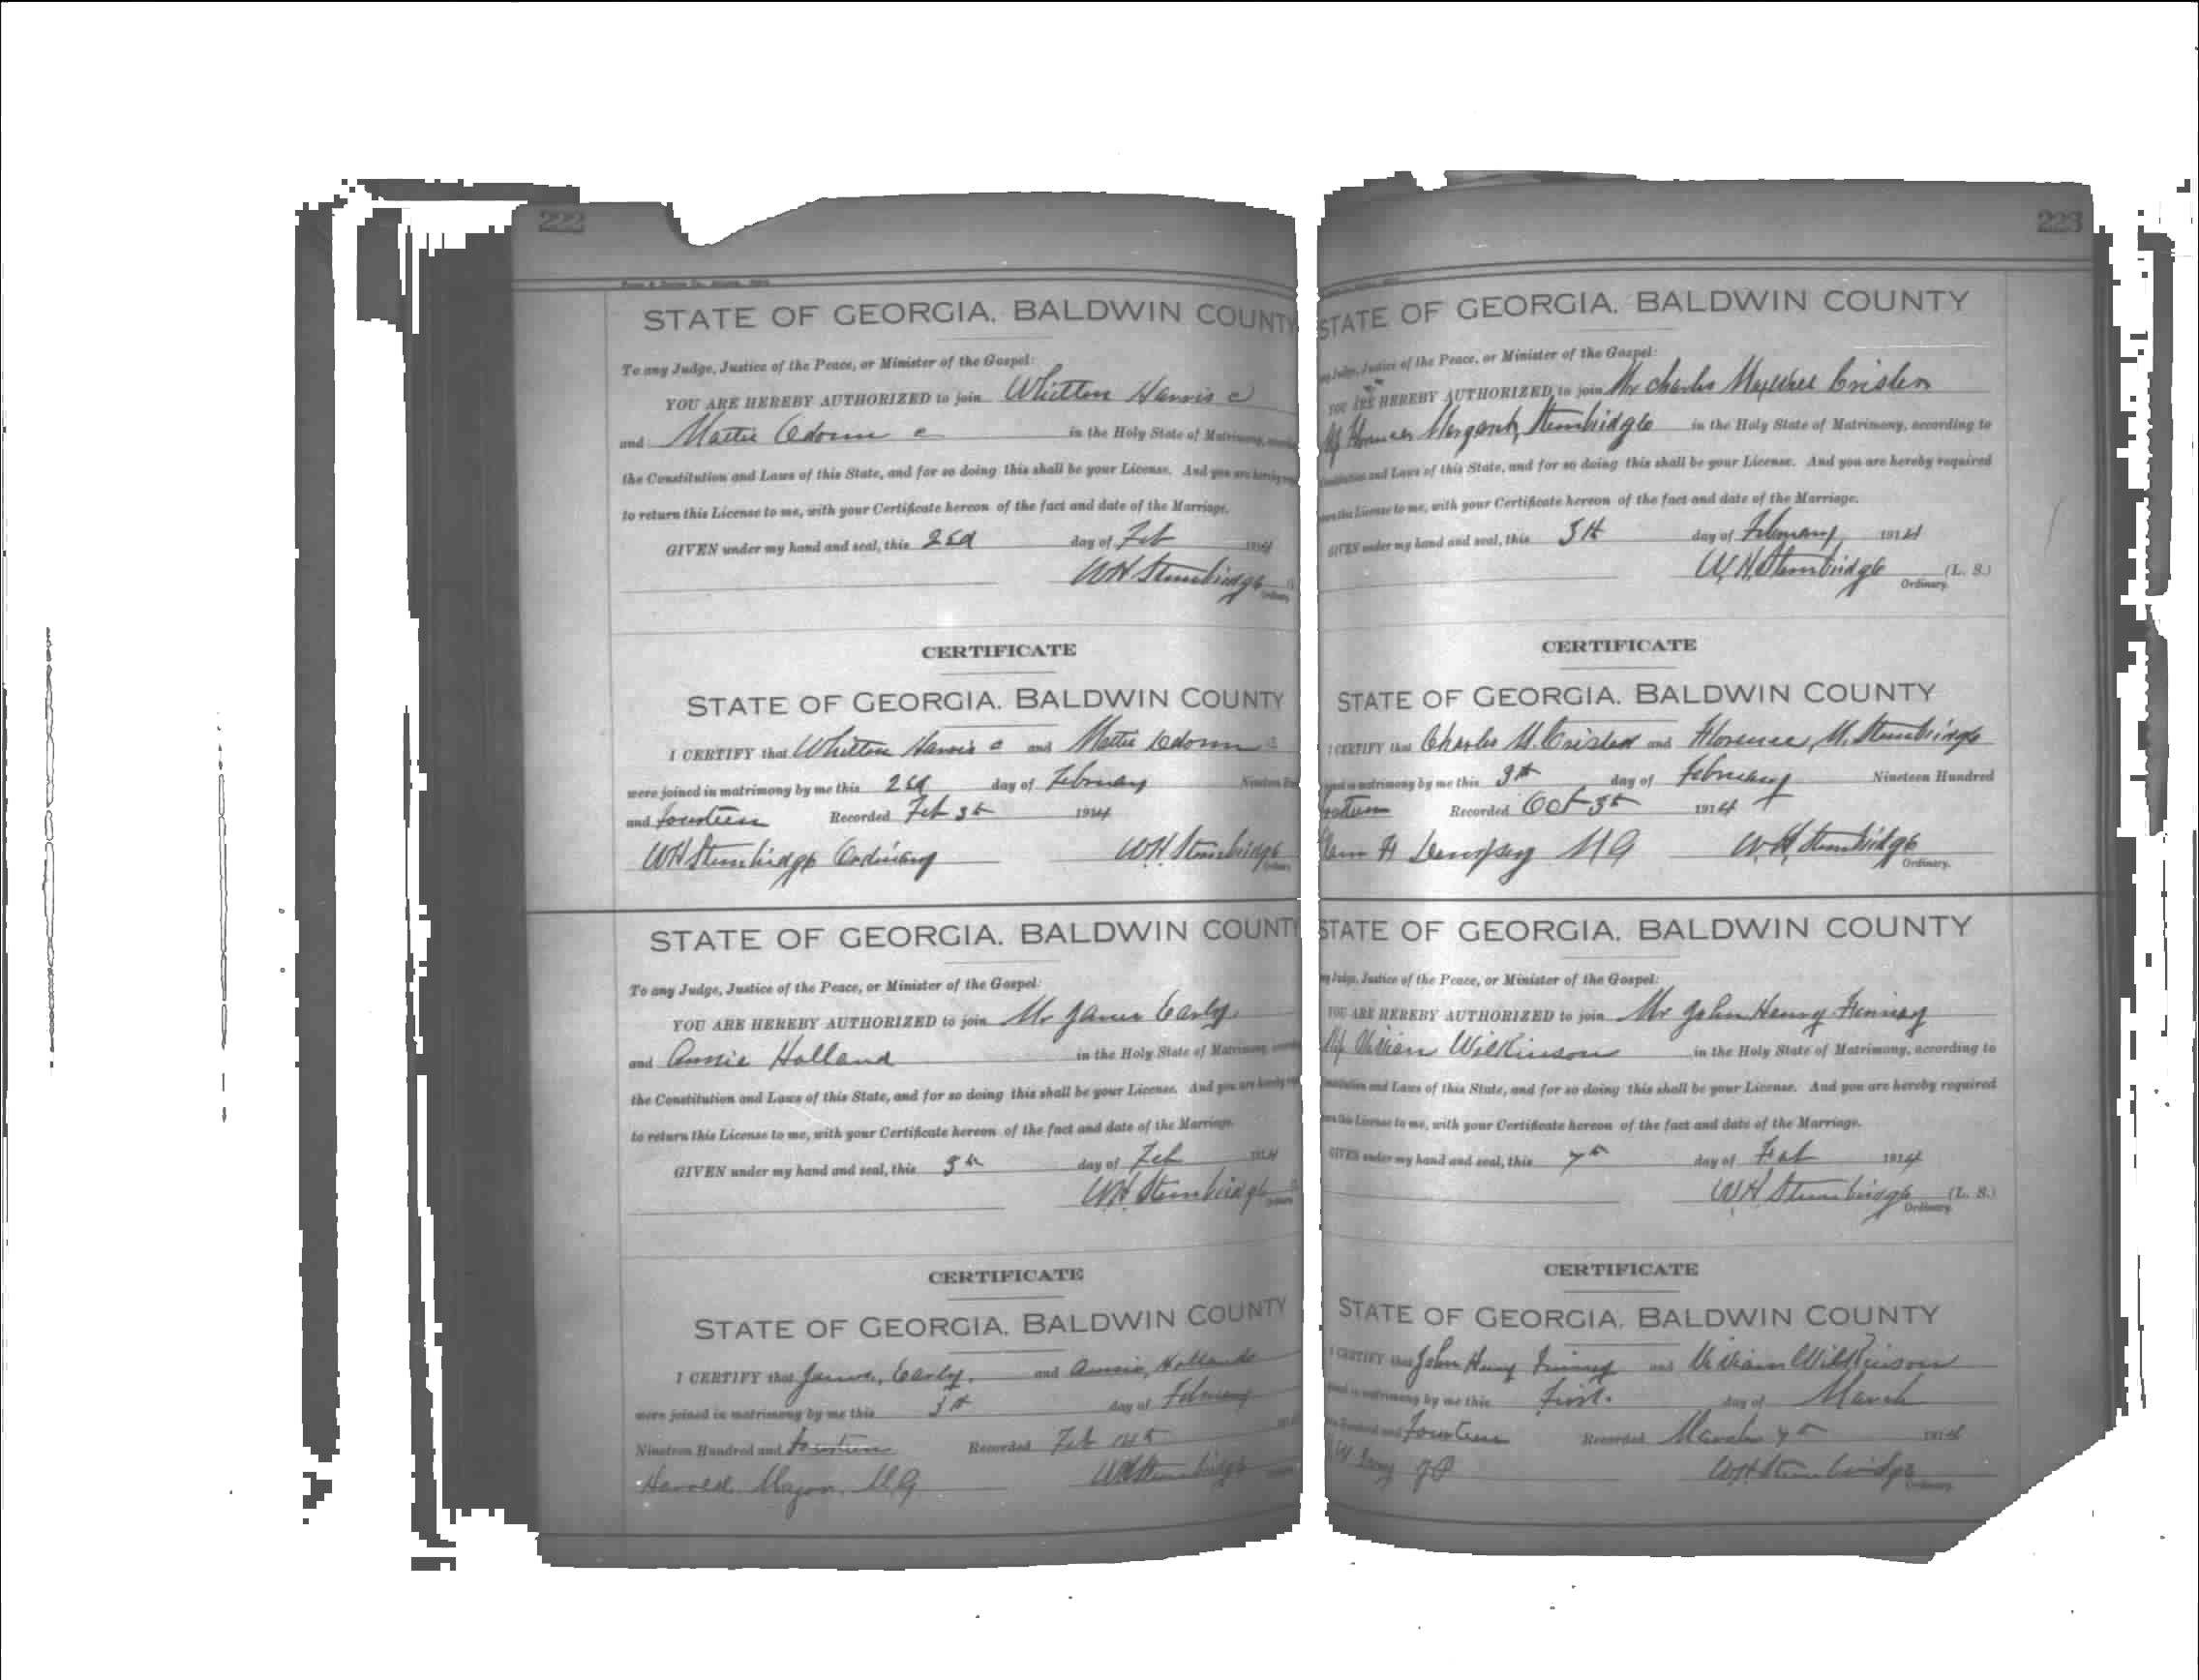 222
STATE OF GEORGIA. BALDWIN COUNTY
To any Judge, Justice of the Peace, or Minister of the Gospel:
YOU ARE HEREBY AUTHORIZED to join Whitten Harris c
and Mattie Odom c in the Holy State of Matrimony,
the Constitution and Laws of this State, and for so doing this shall be your License. And you are hereby
to return this License to me, with your Certificate hereon of the fact and date of the Marriage.
GIVEN under my hand and seal, this 2nd day of Feb 1914
WH Stembridge
Ordinary
CERTIFICATE
STATE OF GEORGIA. BALDWIN COUNTY
I CERTIFY that Whitten Harris c and Mattie Odom c
were joined in matrimony by me this 2nd day of February Nineteen
and fourteen Recorded Feb 3rd 1914
WH Stembridge Ordinary WH Stembridge
STATE OF GEORGIA. BALDWIN COUNTY
To any Judge, Justice of the Peace, or Minister of the Gospel:
YOU ARE HEREBY AUTHORIZED to join Mr James Early
and Annie Holland in the Holy State of Matrimony,
the Constitution and Laws of this State, and for so doing this shall be your License. And you are hereby
to return this License to me, with your Certificate hereon of the fact and date of the Marriage.
GIVEN under my hand and seal, this 5th day of Feb 1914
WH Stembridge
CERTIFICATE
STATE OF GEORGIA. BALDWIN COUNTY
I CERTIFY that James Early. and Annie Holland
were joined in matrimony by me this 5th day of February
Nineteen Hundred and fourteen Recorded Feb
Harold Major. M.G WH Stembridge
223
STATE OF GEORGIA. BALDWIN COUNTY
Judge, Justice of the Peace, or Minister of the Gospel:
YOU ARE HEREBY AUTHORIZED to join Mr Charles Maxwell Crisler
Margaret Stembridge in the Holy State of Matrimony, according to
and Laws of this State, and for so doing this shall be your License. And you are hereby required
License to me, with your Certificate hereon of the fact and date of the Marriage.
GIVEN under my hand and seal, this day of February 1914
W.H. Stembridge (L. S.)
Ordinary.
CERTIFICATE
STATE OF GEORGIA. BALDWIN COUNTY
I CERTIFY that Charles M. Crisler and Florence, M. Stembridge
in matrimony by me this day of February Nineteen Hundred
Recorded Oct 1914
H Dempsey MG W.H. Stembridge
Ordinary.
STATE OF GEORGIA. BALDWIN COUNTY
Judge, Justice of the Peace, or Minister of the Gospel:
YOU ARE HEREBY AUTHORIZED to join Mr John Henry Finney
Vivian Wilkinson in the Holy State of Matrimony, according to
and Laws of this State, and for so doing this shall be your License. And you are hereby required
License to me, with your Certificate hereon of the fact and date of the Marriage.
GIVEN under my hand and seal, this 7th day of Feb 1914
WH Stembridge (L. S.)
Ordinary.
CERTIFICATE
STATE OF GEORGIA. BALDWIN COUNTY
I CERTIFY that John Henry Finney and Vivian Wilkinson
in matrimony by me this First. day of March
Hundred and Fourteen Recorded March 7th 1914
JP WH Stembridge
Ordinary.